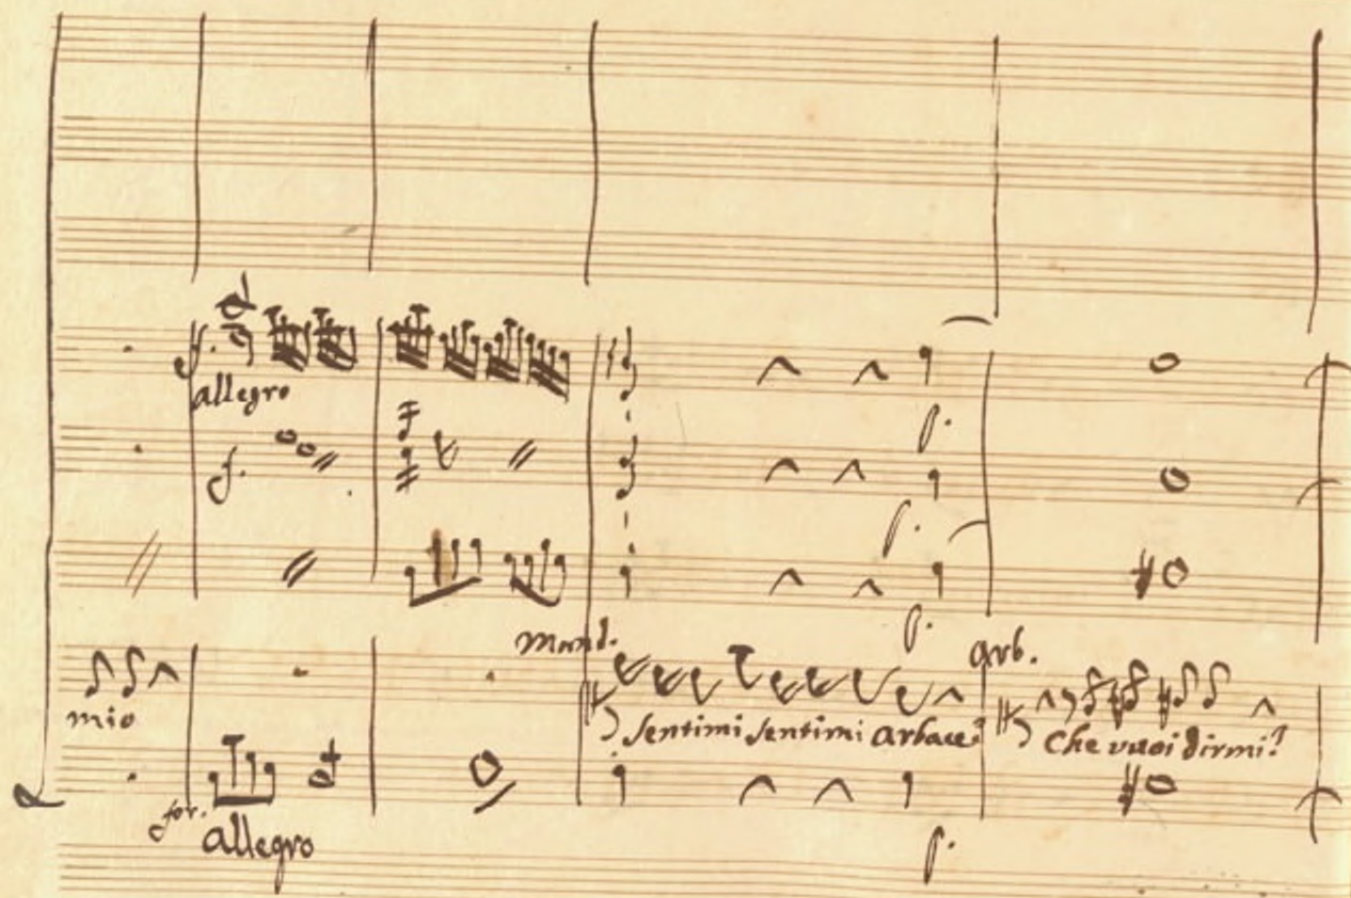 f.
allegro
f.
p.
p.
p.
Mand.
Arb.
mio
Sentimi Sentimi Arbace?
Che vuoi dirmi?
for.
allegro
p.